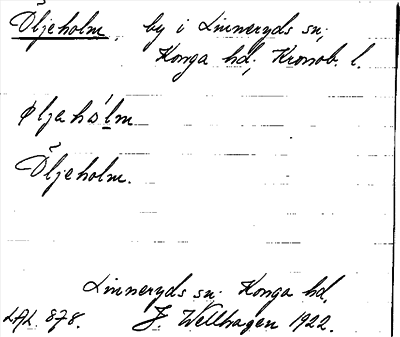 Öljeholm, by i Linneryds sn;
Konga hd; Kronob. l.
øljahólm
Öljeholm.
Linneryds sn. Konga hd.
LAL. 878. J. Wellhagen 1922.